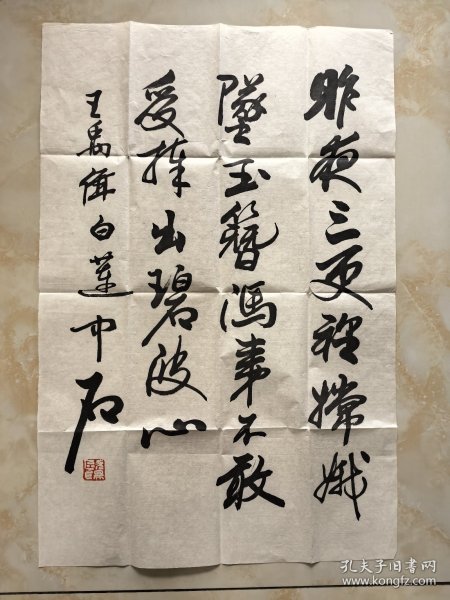 昨夜三更裡嫦娥
墜玉簪馮夷不敢
受捧出碧波心
王禹偁白蓮中石
孔夫子旧书网
www.kongfz.com